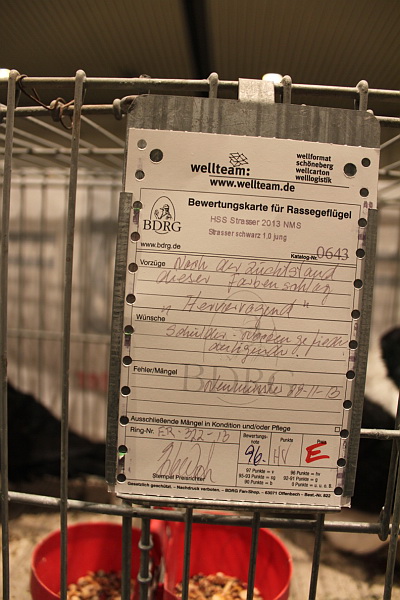 wellteam:
www.wellteam.de
wellformat
schöneberg
wellcarton
welllogistik
BDRG
www.bdrg.de
Bewertungskarte für Rassegeflügel
HSS Strasser 2013 NMS
Strasser schwarz 1,0 jung
Katalog-Nr. 0643
Vorzüge Nach der Zuchtstand
dieser Farbenschlag
„Hervorragend"
Wünsche
Schulder - Rückengefieder
anliegender.
Fehler/Mängel
BDRG
Ausschließende Mängel in Kondition und/oder Pflege
Ring-Nr. ER-522-13
Bewertungs-
note
96
Punkte
HV
Preis
E
Stempel Preisrichter
97 Punkte = v
96 Punkte = hv
93-95 Punkte = sg
90 Punkte = b
0 Punkte = o. u. u. ß.
Gesetzlich geschützt. - Nachdruck verboten. - BDRG Fan-Shop. - 63071 Offenbach - Best.-Nr. 822